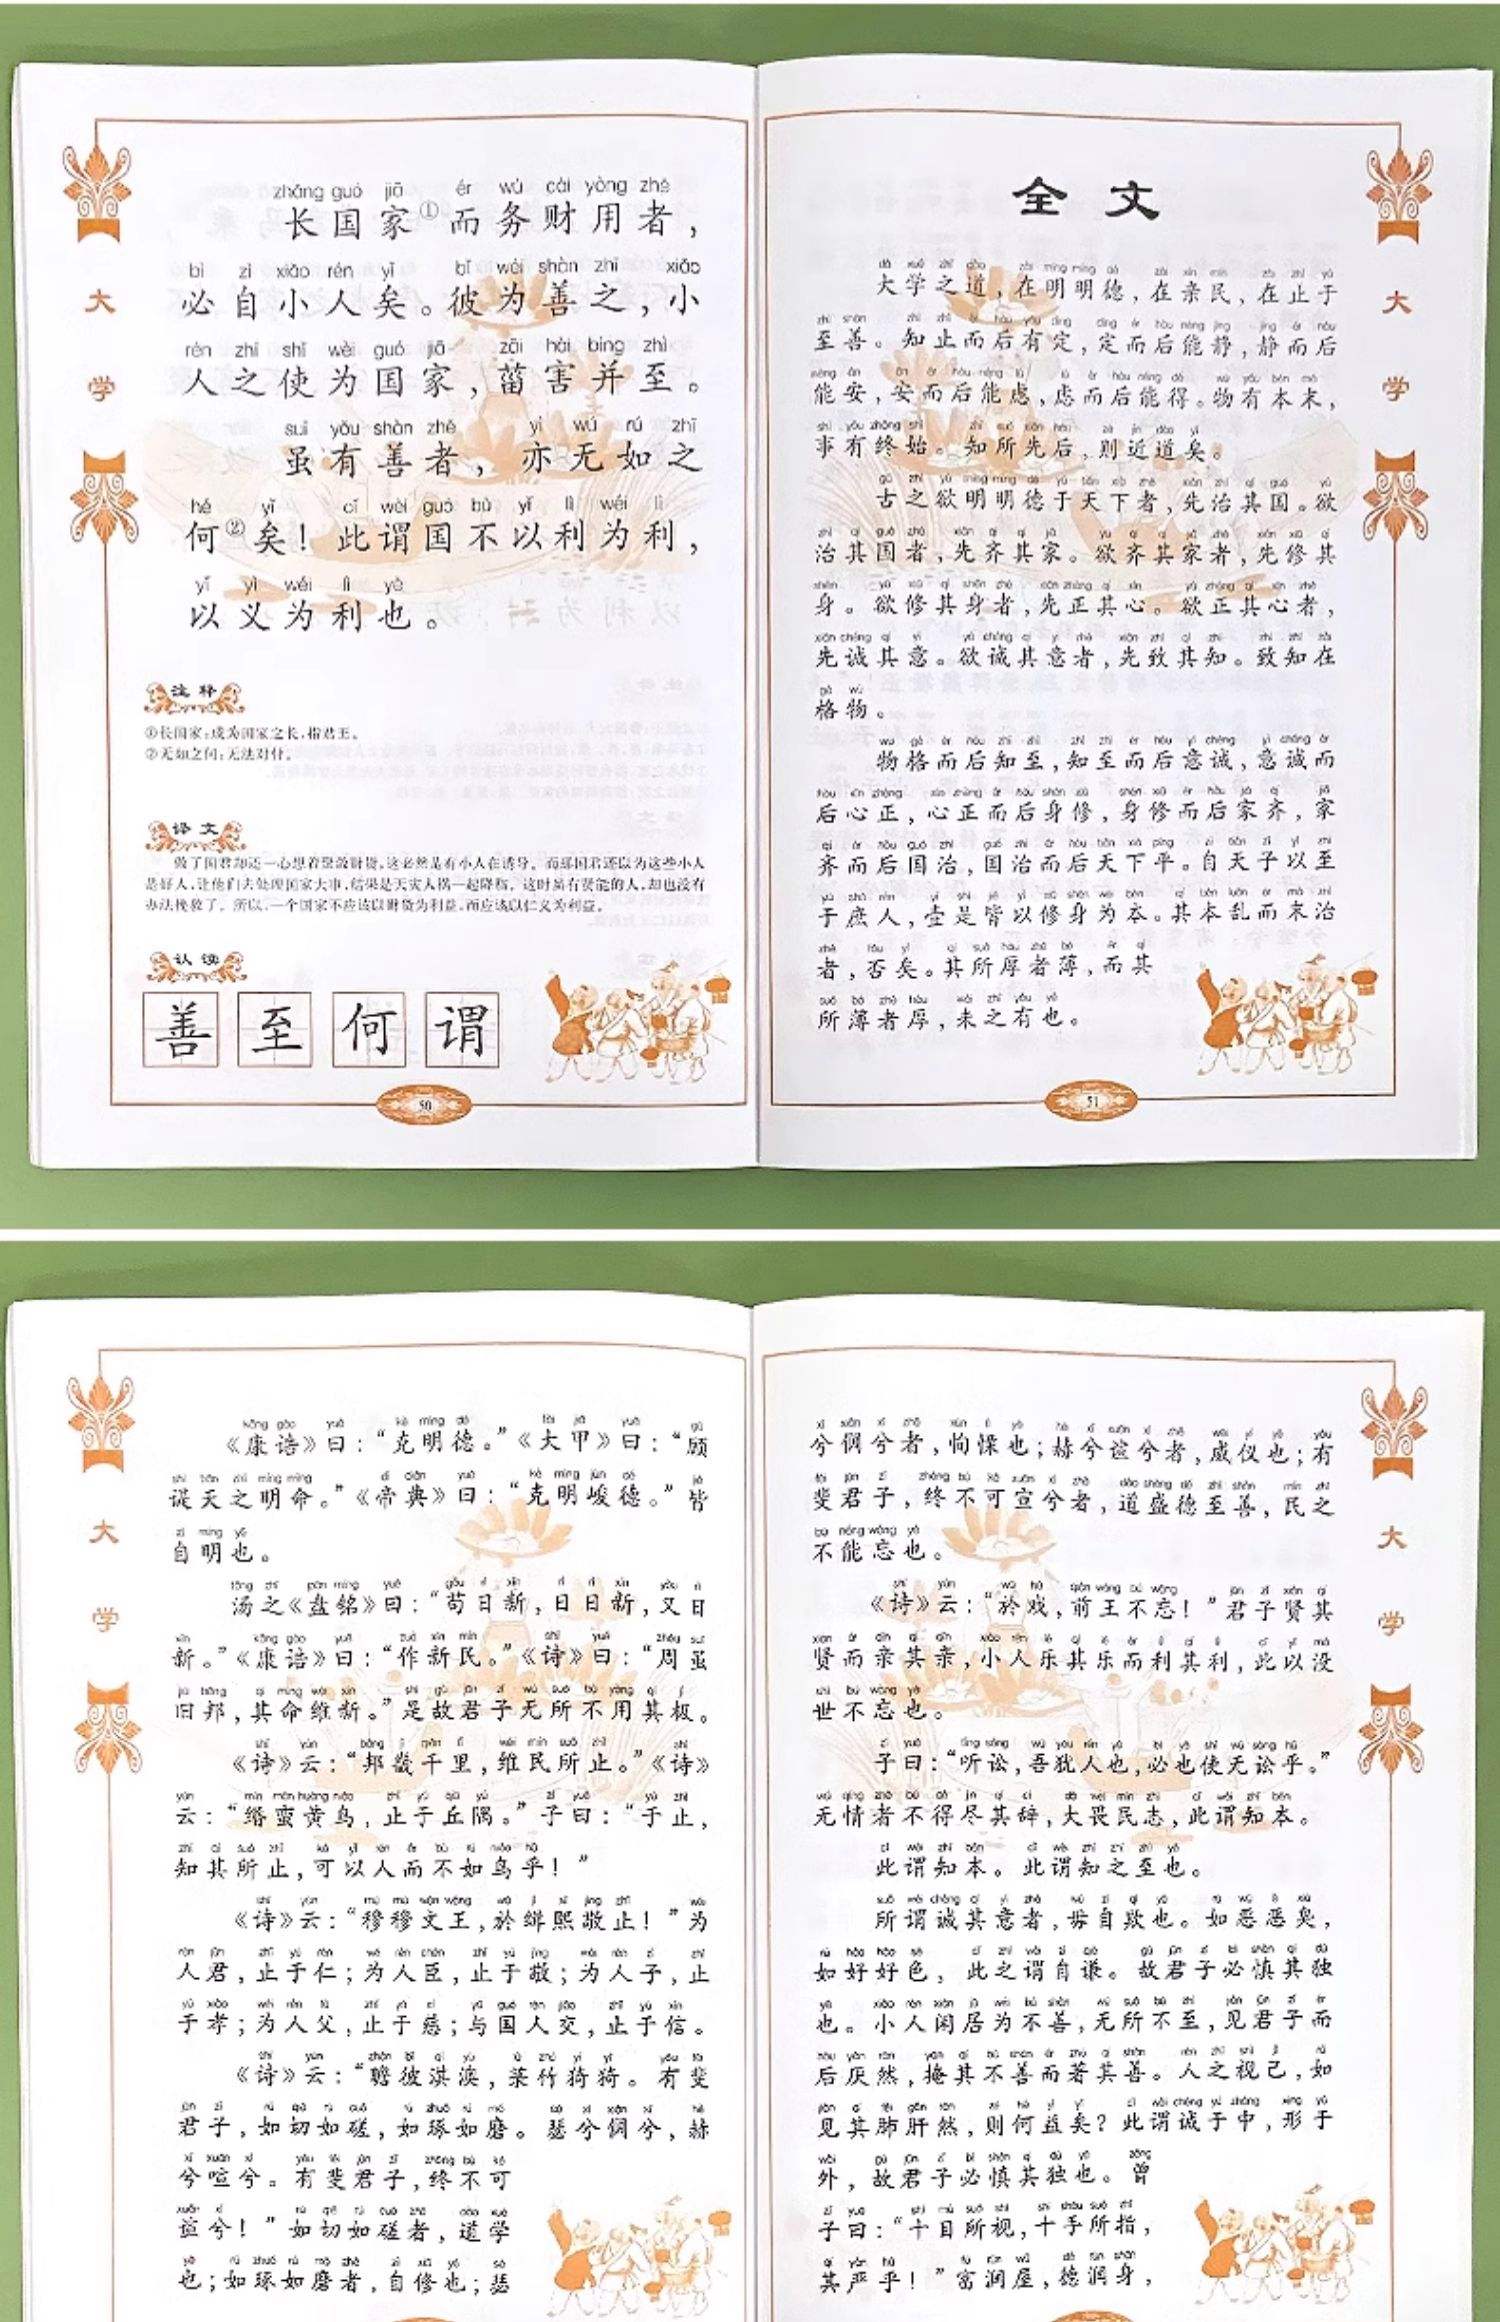 大学
zhǎng guó jiā ér wù cái yòng zhě
长国家①而务财用者，
bì zì xiǎo rén yǐ bǐ wéi shàn zhī xiǎo
必自小人矣。彼为善之，小
rén zhī shǐ wèi guó jiā zāi hài bìng zhì
人之使为国家，菑害并至。
suī yǒu shàn zhě yì wú rú zhī
虽有善者，亦无如之
hé yǐ cǐ wèi guó bù yǐ lì wéi lì
何②矣！此谓国不以利为利，
yǐ yì wéi lì yě
以义为利也。
注释
①长国家：成为国家之长，指君王。
②无如之何：无法对付。
译文
做了国君却还一心想着聚敛财货，这必然是有小人在诱导。而那国君还以为这些小人
是好人，让他们去处理国家大事，结果是天灾人祸一起降临。这时虽有贤能的人，却也没有
办法挽救了。所以，一个国家不应该以财货为利益，而应该以仁义为利益。
认读
善至何谓
50
大学
全文
大学之道，在明明德，在亲民，在止于
至善。知止而后有定，定而后能静，静而后
能安，安而后能虑，虑而后能得。物有本末，
事有终始。知所先后，则近道矣。
古之欲明明德于天下者，先治其国。欲
治其国者，先齐其家。欲齐其家者，先修其
身。欲修其身者，先正其心。欲正其心者，
先诚其意。欲诚其意者，先致其知。致知在
gé wù
格物。
物格而后知至，知至而后意诚，意诚而
后心正，心正而后身修，身修而后家齐，家
齐而后国治，国治而后天下平。自天子以至
于庶人，壹是皆以修身为本。其本乱而末治
者，否矣。其所厚者薄，而其
所薄者厚，未之有也。
51
大学
《康诰》曰：“克明德。”《大甲》曰：“顾
諟天之明命。”《帝典》曰：“克明峻德。”皆
zì míng yě
自明也。
汤之《盘铭》曰：“苟日新，日日新，又日
新。”《康诰》曰：“作新民。”《诗》曰：“周虽
旧邦，其命维新。”是故君子无所不用其极。
《诗》云：“邦畿千里，维民所止。”《诗》
云：“缗蛮黄鸟，止于丘隅。”子曰：“于止，
知其所止，可以人而不如鸟乎！”
《诗》云：“穆穆文王，於缉熙敬止！”为
人君，止于仁；为人臣，止于敬；为人子，止
于孝；为人父，止于慈；与国人交，止于信。
《诗》云：“瞻彼淇澳，菉竹猗猗。有斐
君子，如切如磋，如琢如磨。瑟兮僩兮，赫
兮喧兮。有斐君子，终不可
諠兮！”如切如磋者，道学
也；如琢如磨者，自修也；瑟
大学
兮僩兮者，恂慄也；赫兮諠兮者，威仪也；有
斐君子，终不可諠兮者，道盛德至善，民之
bù néng wàng yě
不能忘也。
《诗》云：“於戏，前王不忘！”君子贤其
贤而亲其亲，小人乐其乐而利其利，此以没
shì bú wàng yě
世不忘也。
子曰：“听讼，吾犹人也，必也使无讼乎。”
无情者不得尽其辞，大畏民志，此谓知本。
此谓知本。此谓知之至也。
所谓诚其意者，毋自欺也。如恶恶臭，
如好好色，此之谓自谦。故君子必慎其独
也。小人闲居为不善，无所不至，见君子而
后厌然，掩其不善而著其善。人之视己，如
见其肺肝然，则何益矣？此谓诚于中，形于
外，故君子必慎其独也。曾
子曰：“十目所视，十手所指，
其严乎！”富润屋，德润身，